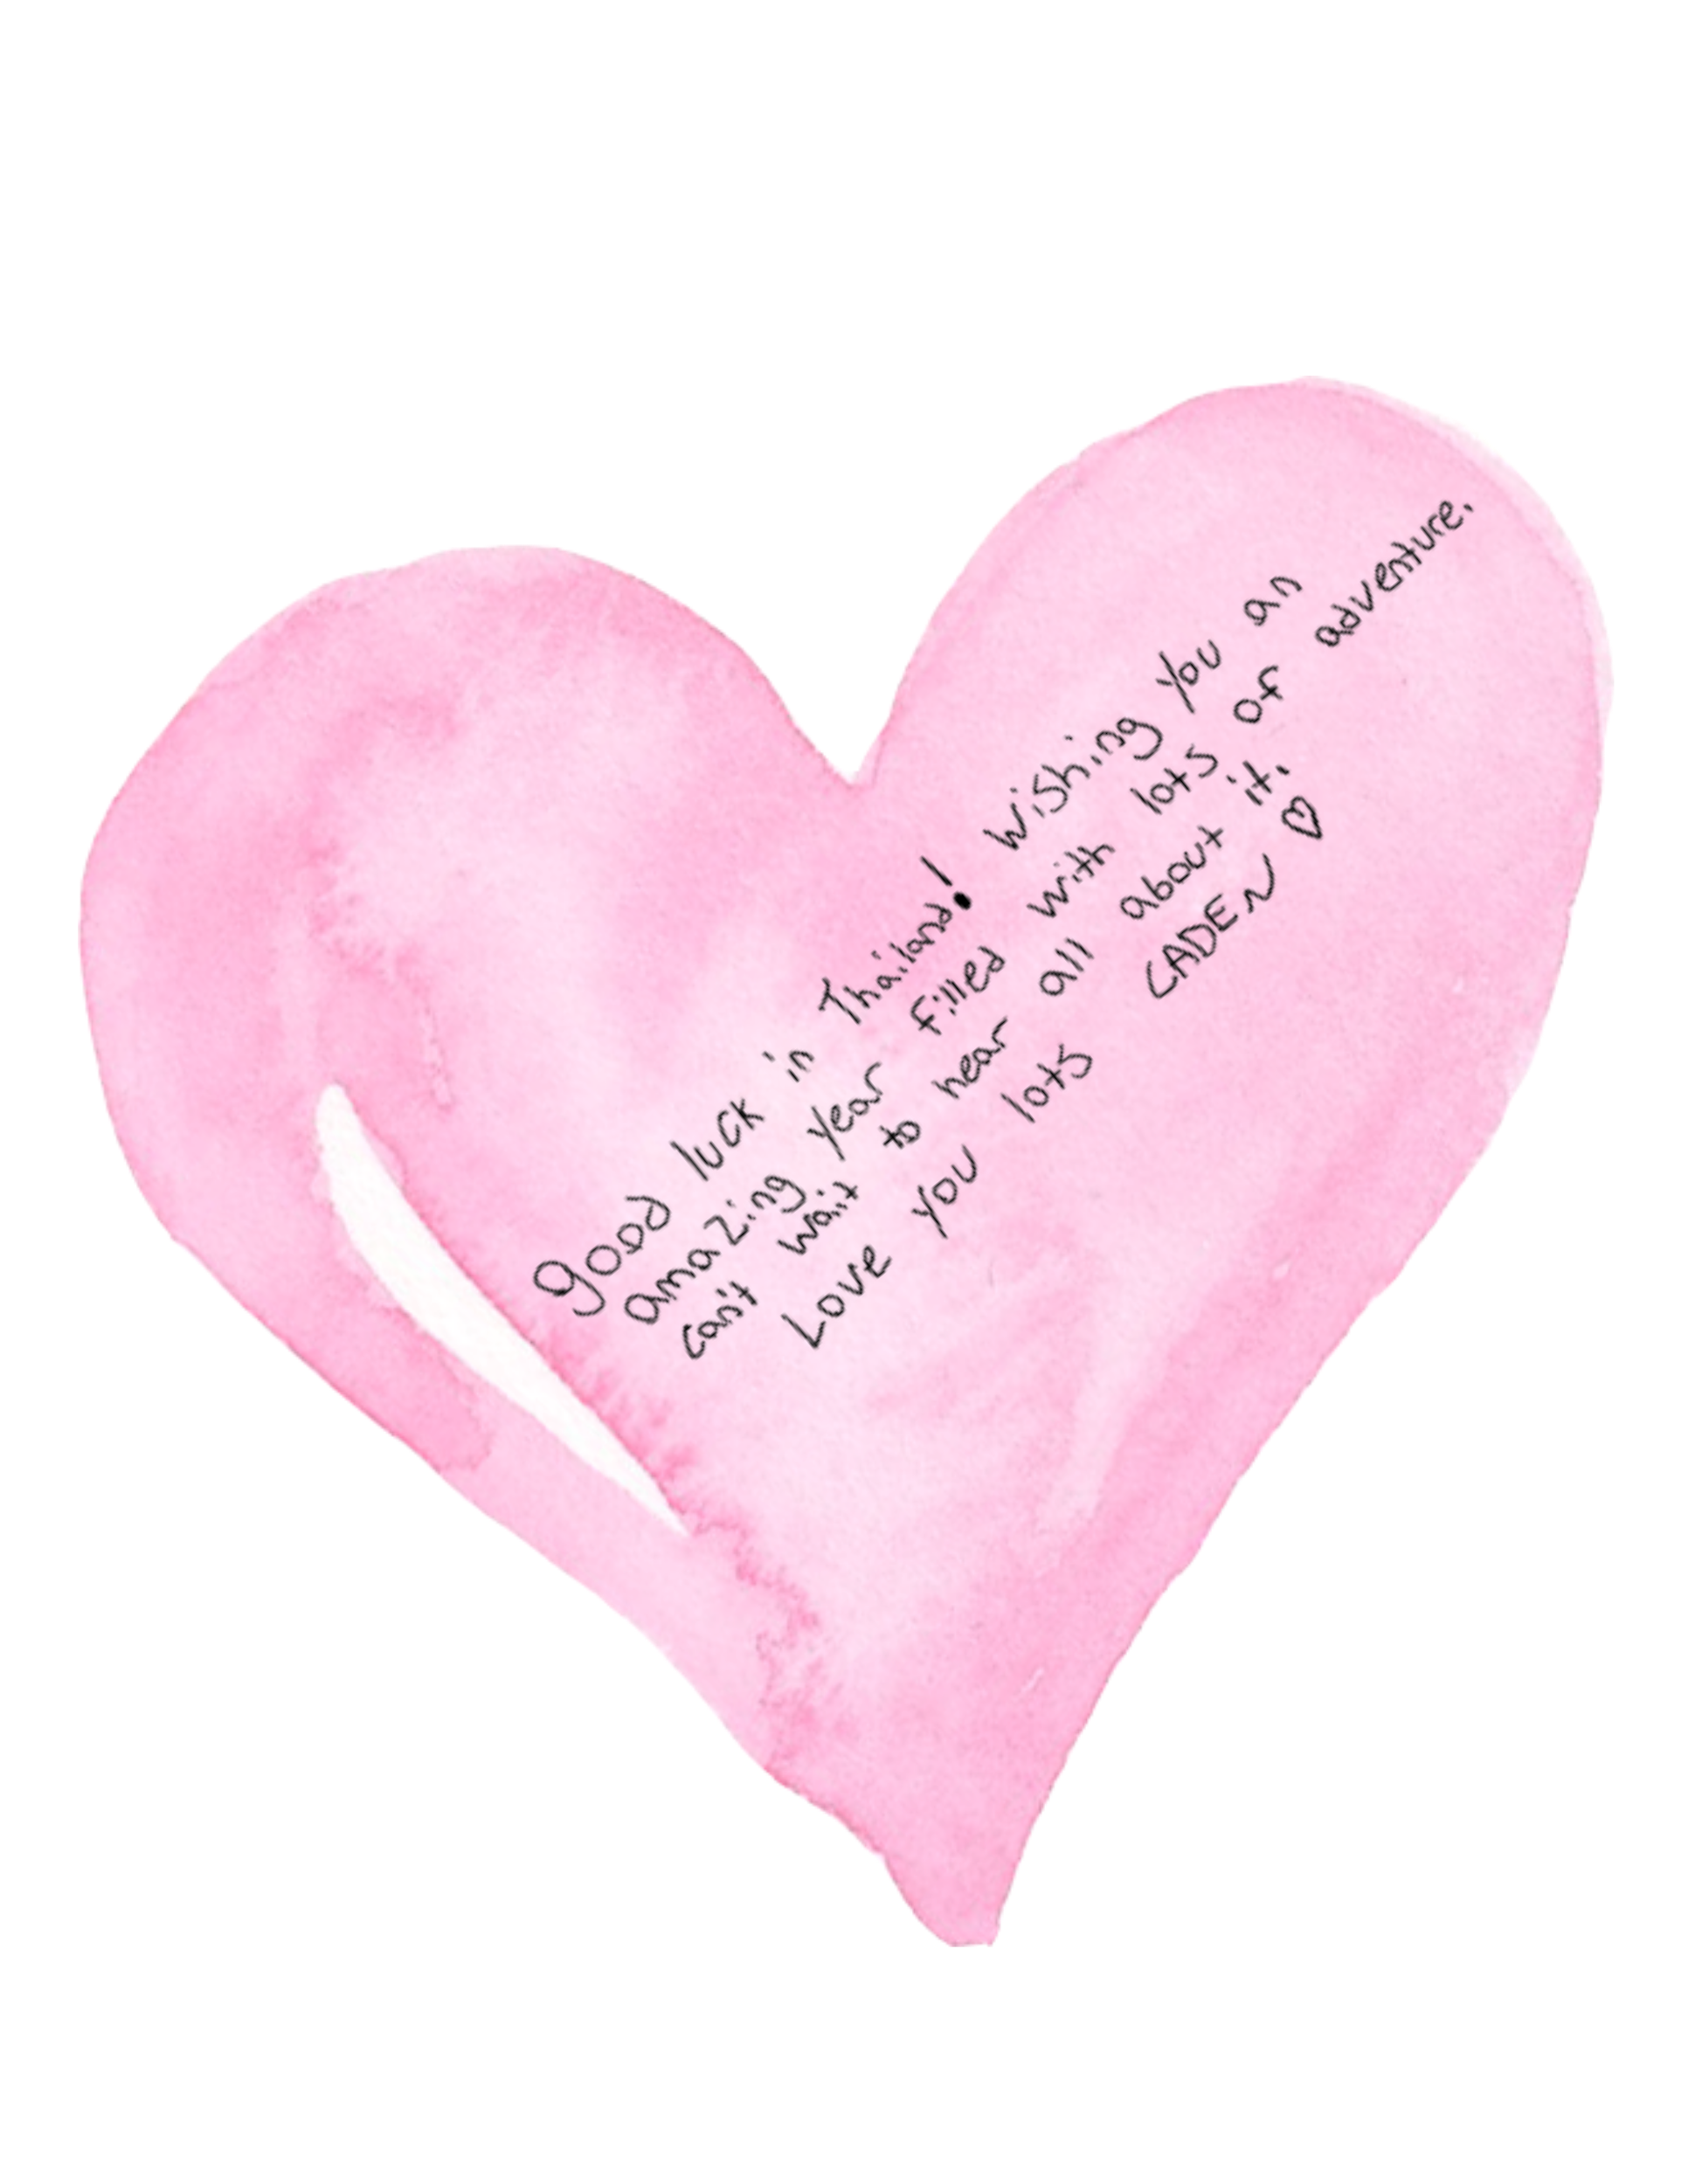 good luck in Thailand! Wishing you an
amazing year filled with lots of adventure.
can't wait to hear all about it.
Love you lots CADEN ♡